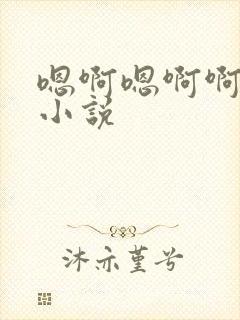 嗯啊嗯啊啊
小说
沐亦堇兮